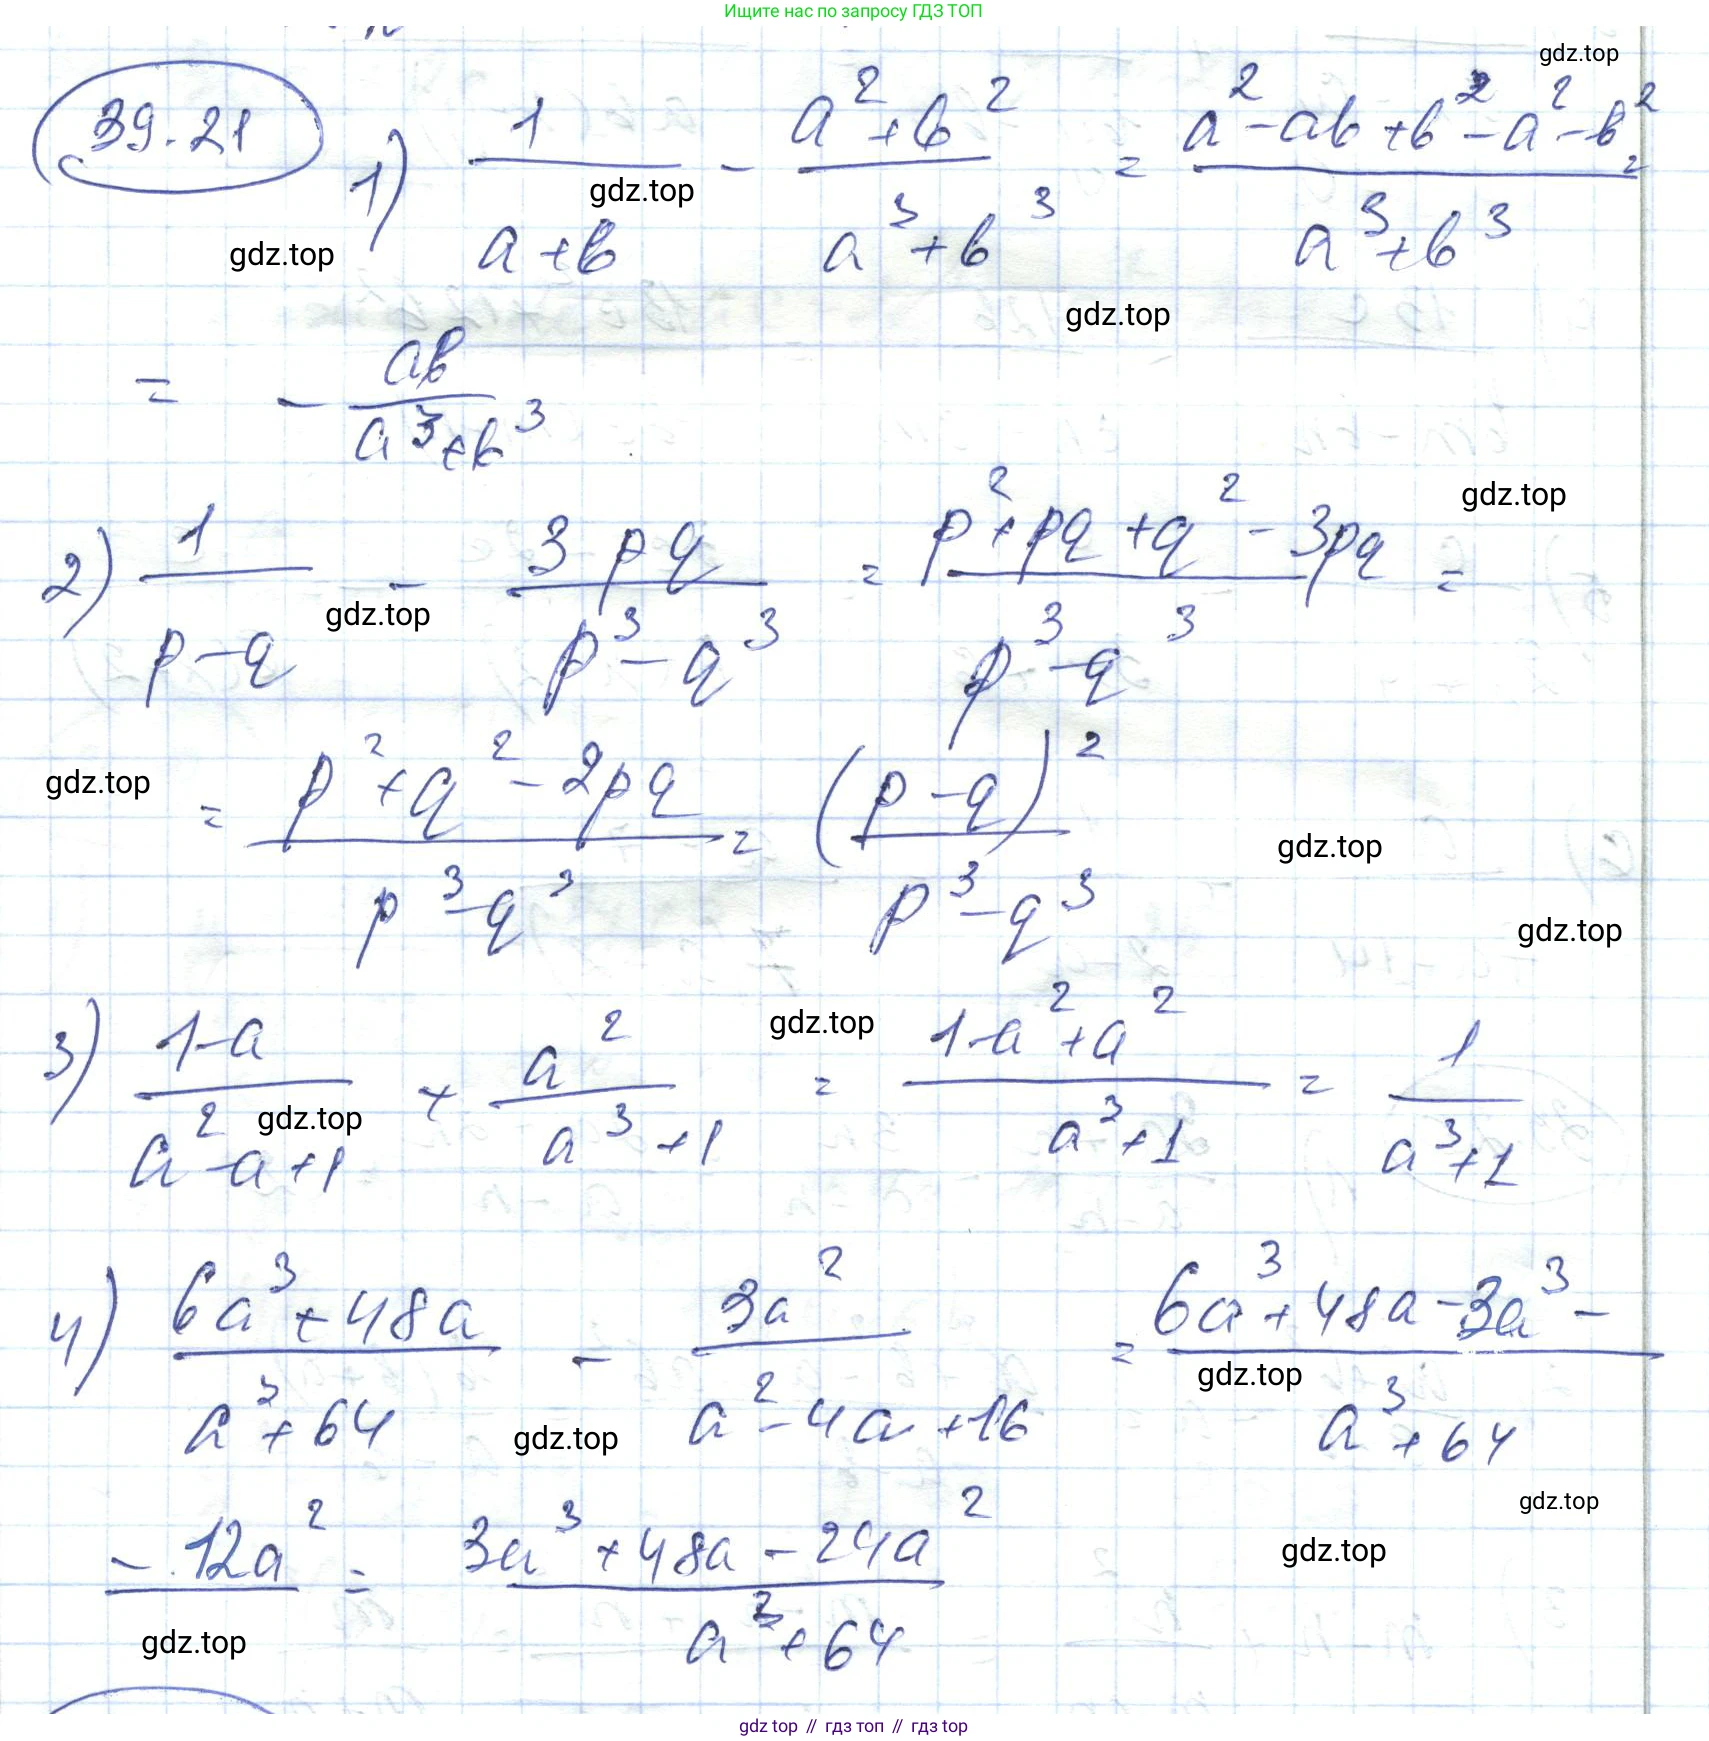 Ищите нас по запросу ГДЗ ТОП
gdz.top
39.21
1) 1/(a+b) - (a²+b²)/(a³+b³) = (a²-ab+b²-a²-b²)/(a³+b³) =
gdz.top
gdz.top
gdz.top
= - ab/(a³+b³)
gdz.top
2) 1/(p-q) - 3pq/(p³-q³) = (p²+pq+q²-3pq)/(p³-q³) =
gdz.top
gdz.top
= (p²+q²-2pq)/(p³-q³) = (p-q)²/(p³-q³)
gdz.top
gdz.top
gdz.top
3) (1-a)/(a²-a+1) + a²/(a³+1) = (1-a²+a²)/(a³+1) = 1/(a³+1)
gdz.top
4) (6a³+48a)/(a³+64) - 3a²/(a²-4a+16) = (6a³+48a-3a³-)/(a³+64)
gdz.top
gdz.top
gdz.top
-12a² = (3a³+48a-24a²)/(a³+64)
gdz.top
gdz.top
gdz top // гдз топ // гдз top